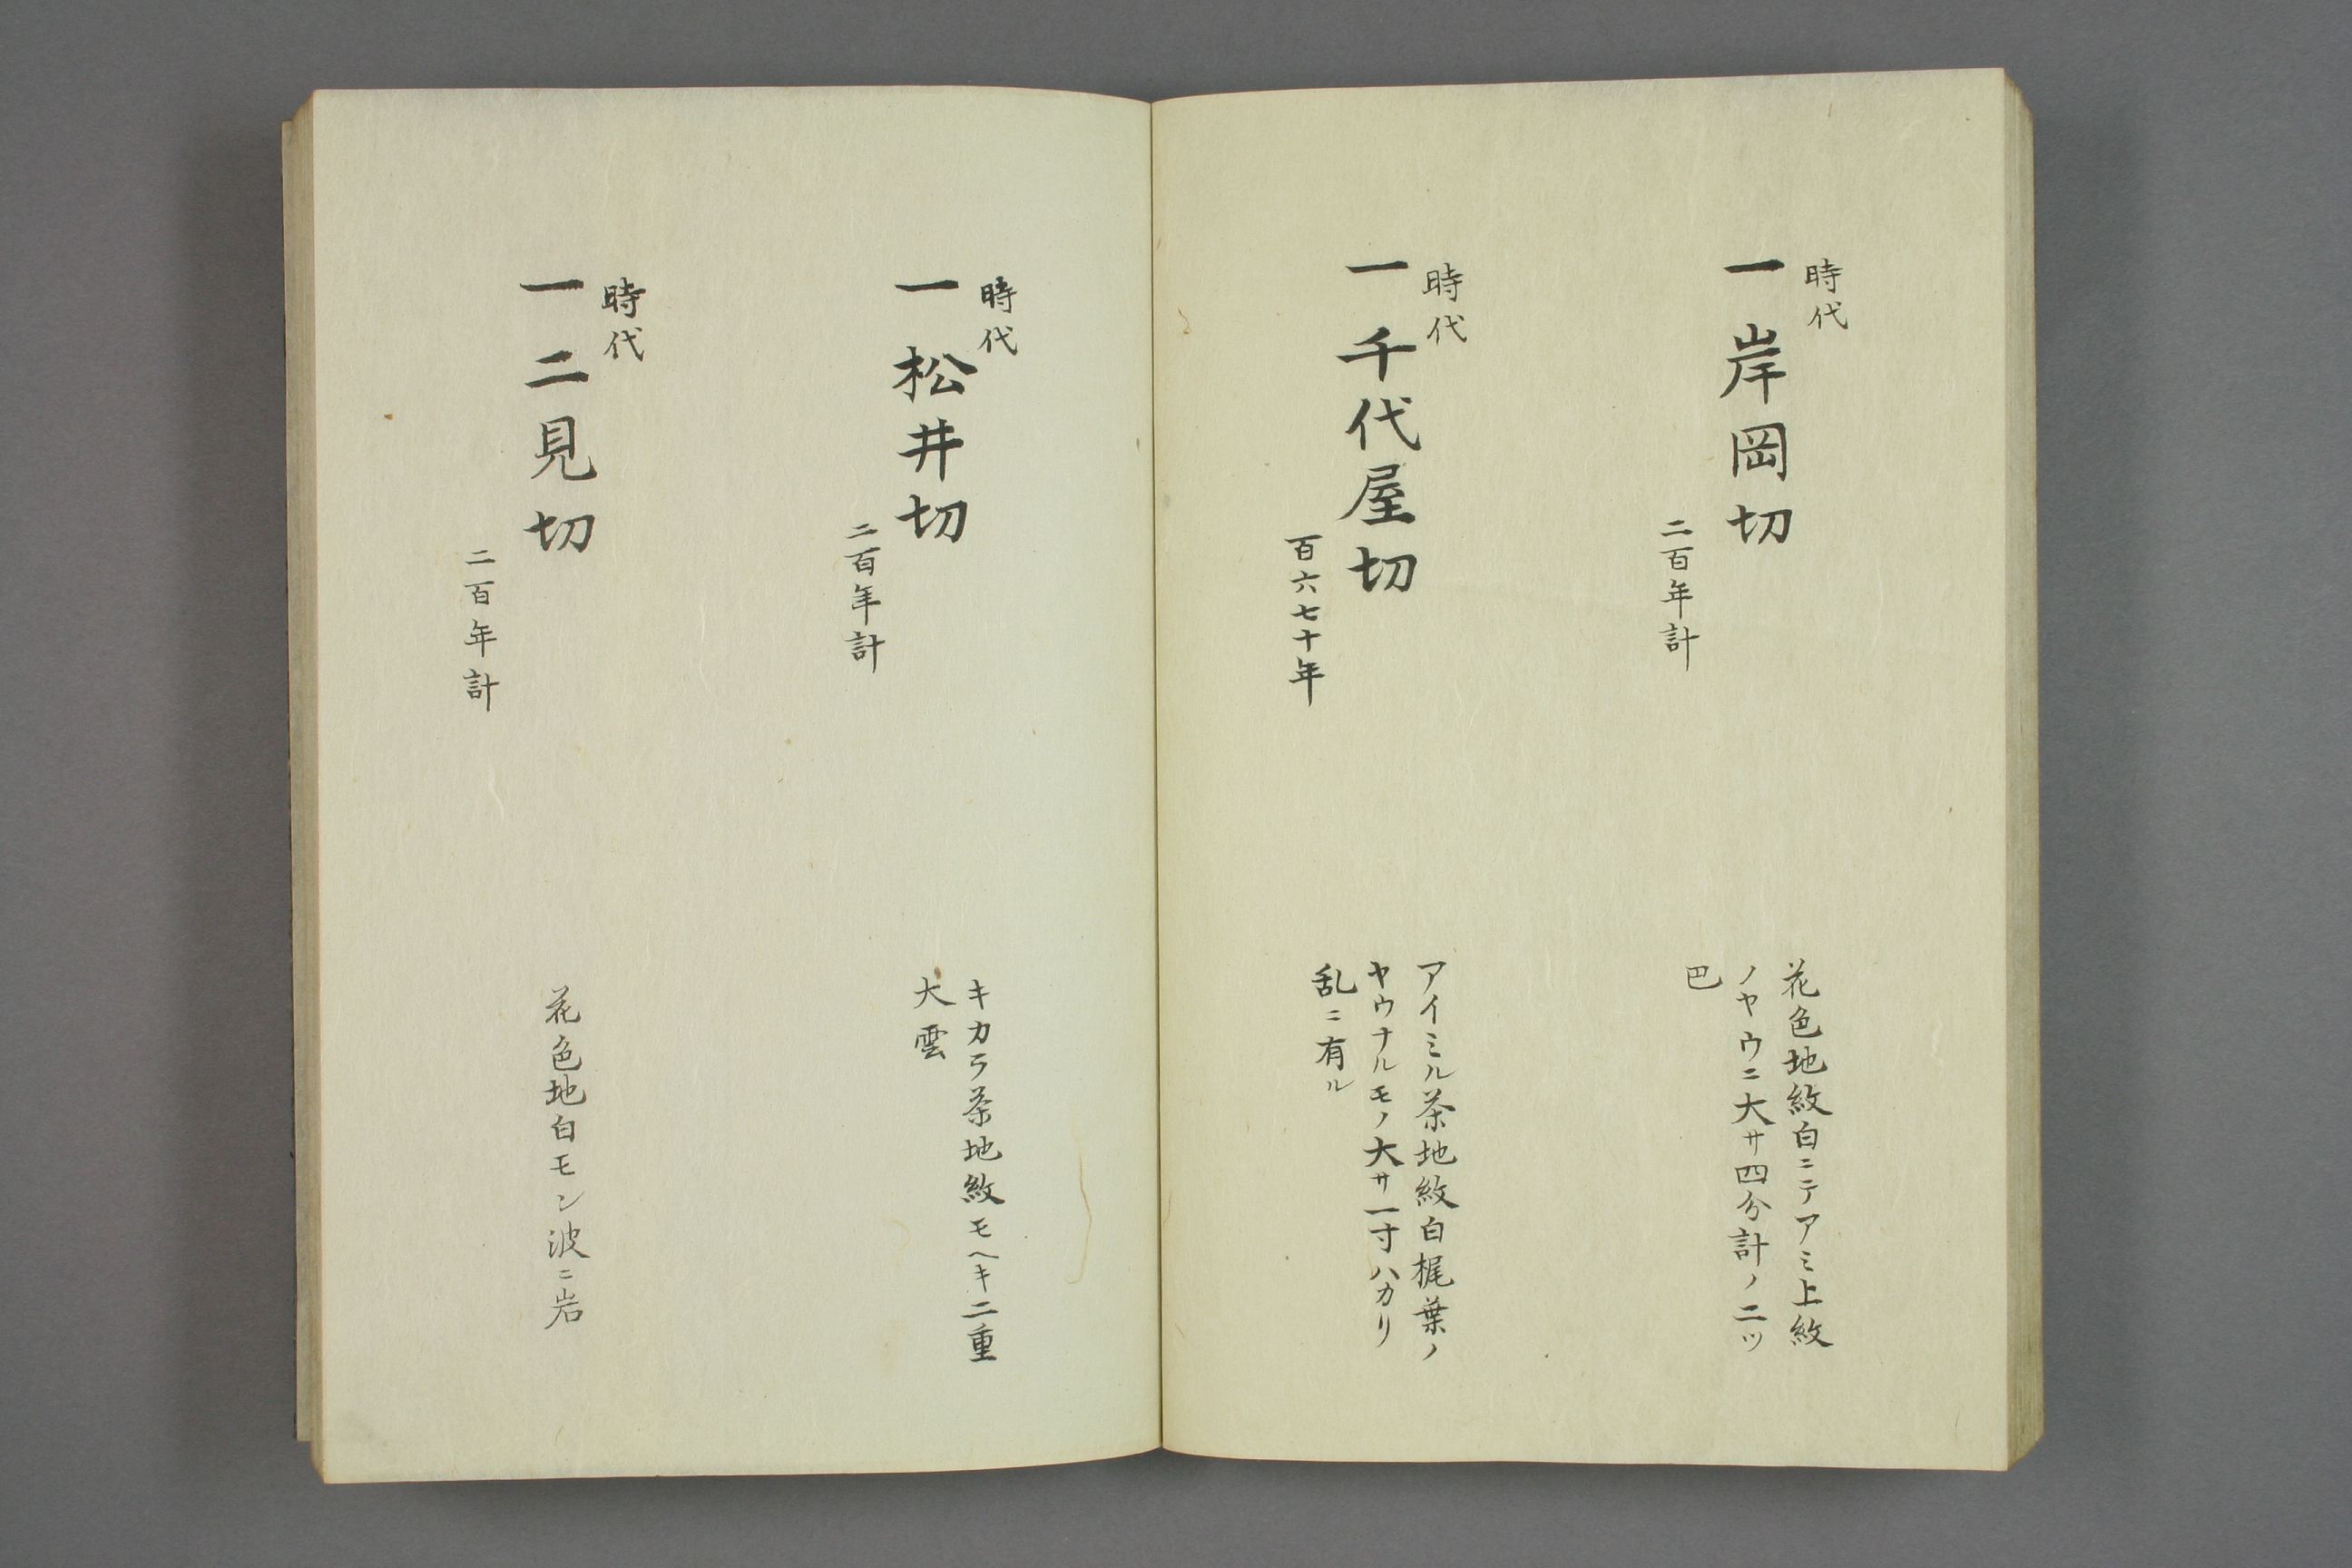 時代
一岸岡切
二百年計
花色地紋白ニテアミ上紋
ノヤウニ大サ四分計ノ二ツ
巴
時代
一千代屋切
百六七十年
アイミル茶地紋白梶葉ノ
ヤウナルモノ大サ一寸ハカリ
乱ニ有ル
時代
一松井切
二百年計
キカラ茶地紋モヘキ二重
大雲
時代
一二見切
二百年計
花色地白モン波ニ岩